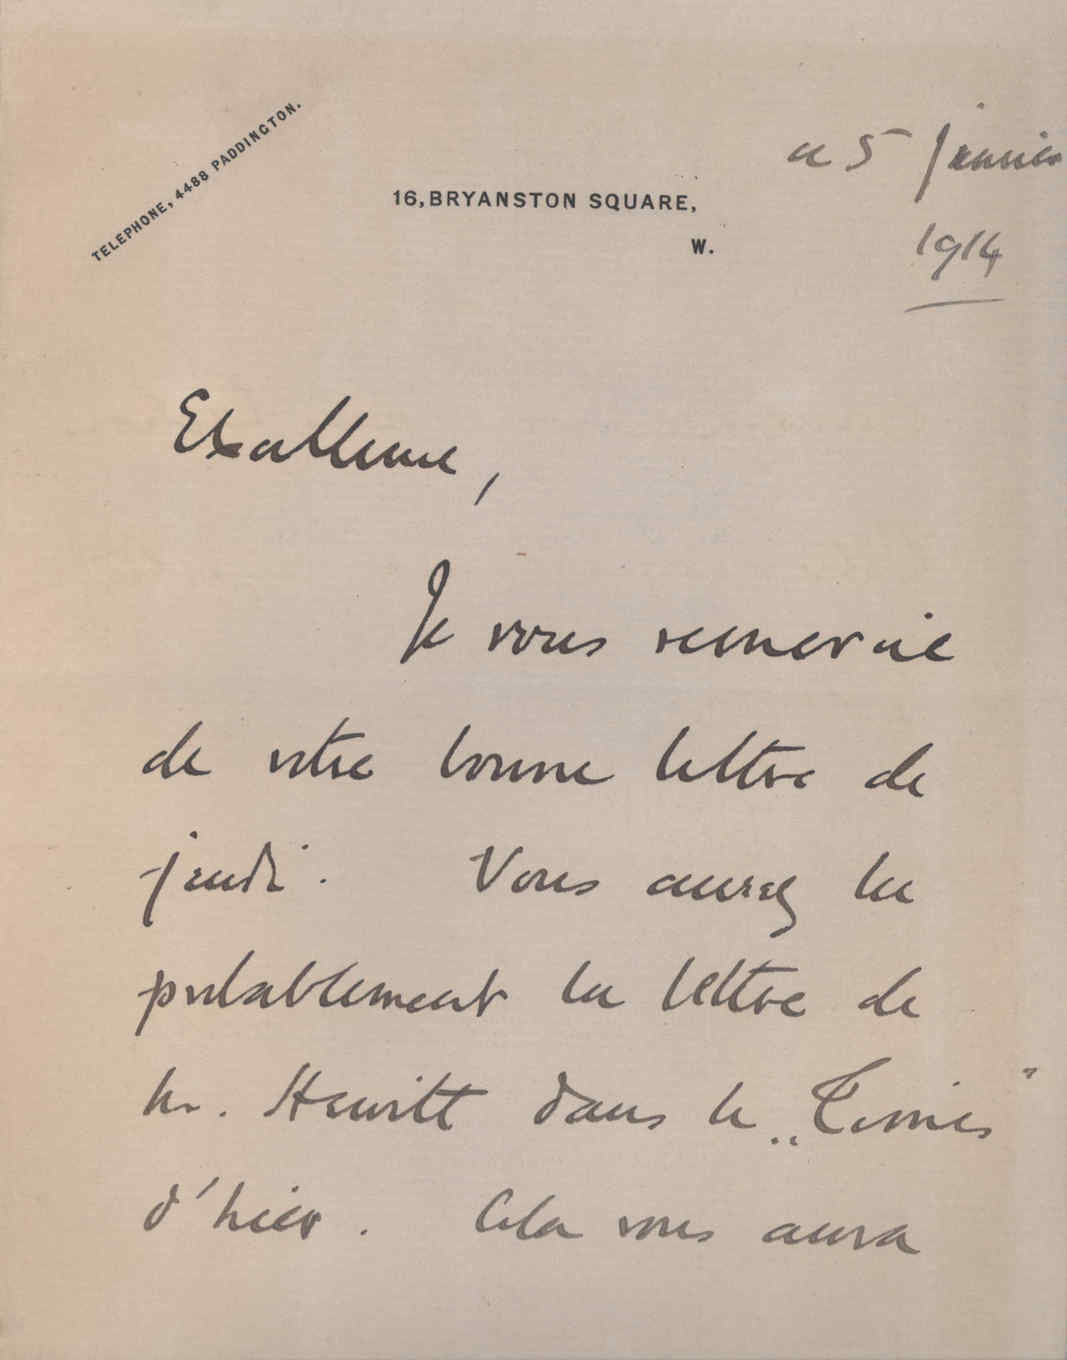 TELEPHONE, 4488 PADDINGTON.
16, BRYANSTON SQUARE,
W.
ce 5 janvier
1914
Excellence,
Je vous remercie
de votre bonne lettre de
jeudi. Vous aurez lu
probablement la lettre de
Mr. Hewitt dans le „Times"
d'hier. Cela vous aura